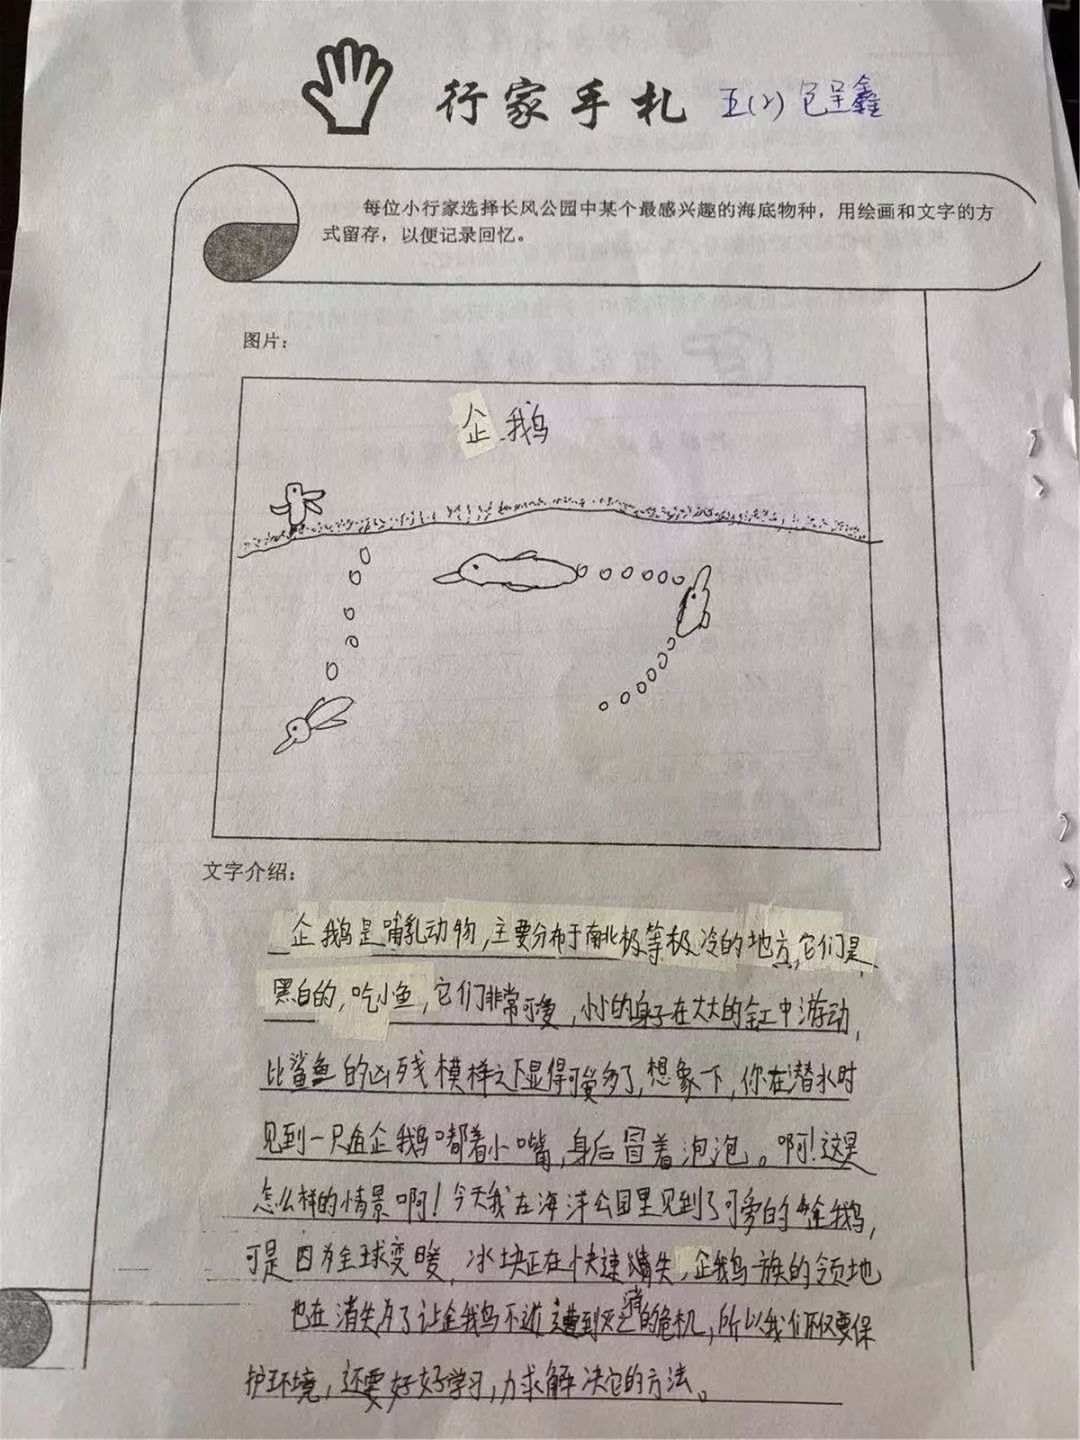 行家手札 五(2) 包呈鑫
每位小行家选择长风公园中某个最感兴趣的海底物种，用绘画和文字的方
式留存，以便记录回忆。
图片：
企鹅
文字介绍：
企鹅是哺乳动物，主要分布于南北极等极冷的地方，它们是
黑白的，吃小鱼，它们非常可爱，小小的身子在大大的缸中游动，
比鲨鱼的凶残模样之下显得可爱多了，想象下，你在潜水时
见到一只企鹅嘟着小嘴，身后冒着泡泡。啊！这是
怎么样的情景啊！今天我在海洋公园里见到了可爱的企鹅，
可是因为全球变暖，冰块正在快速消失，企鹅一族的领地
也在消失为了让企鹅不遭到灭消的危机，所以我们不仅要保
护环境，还要好好学习，力求解决它的方法。